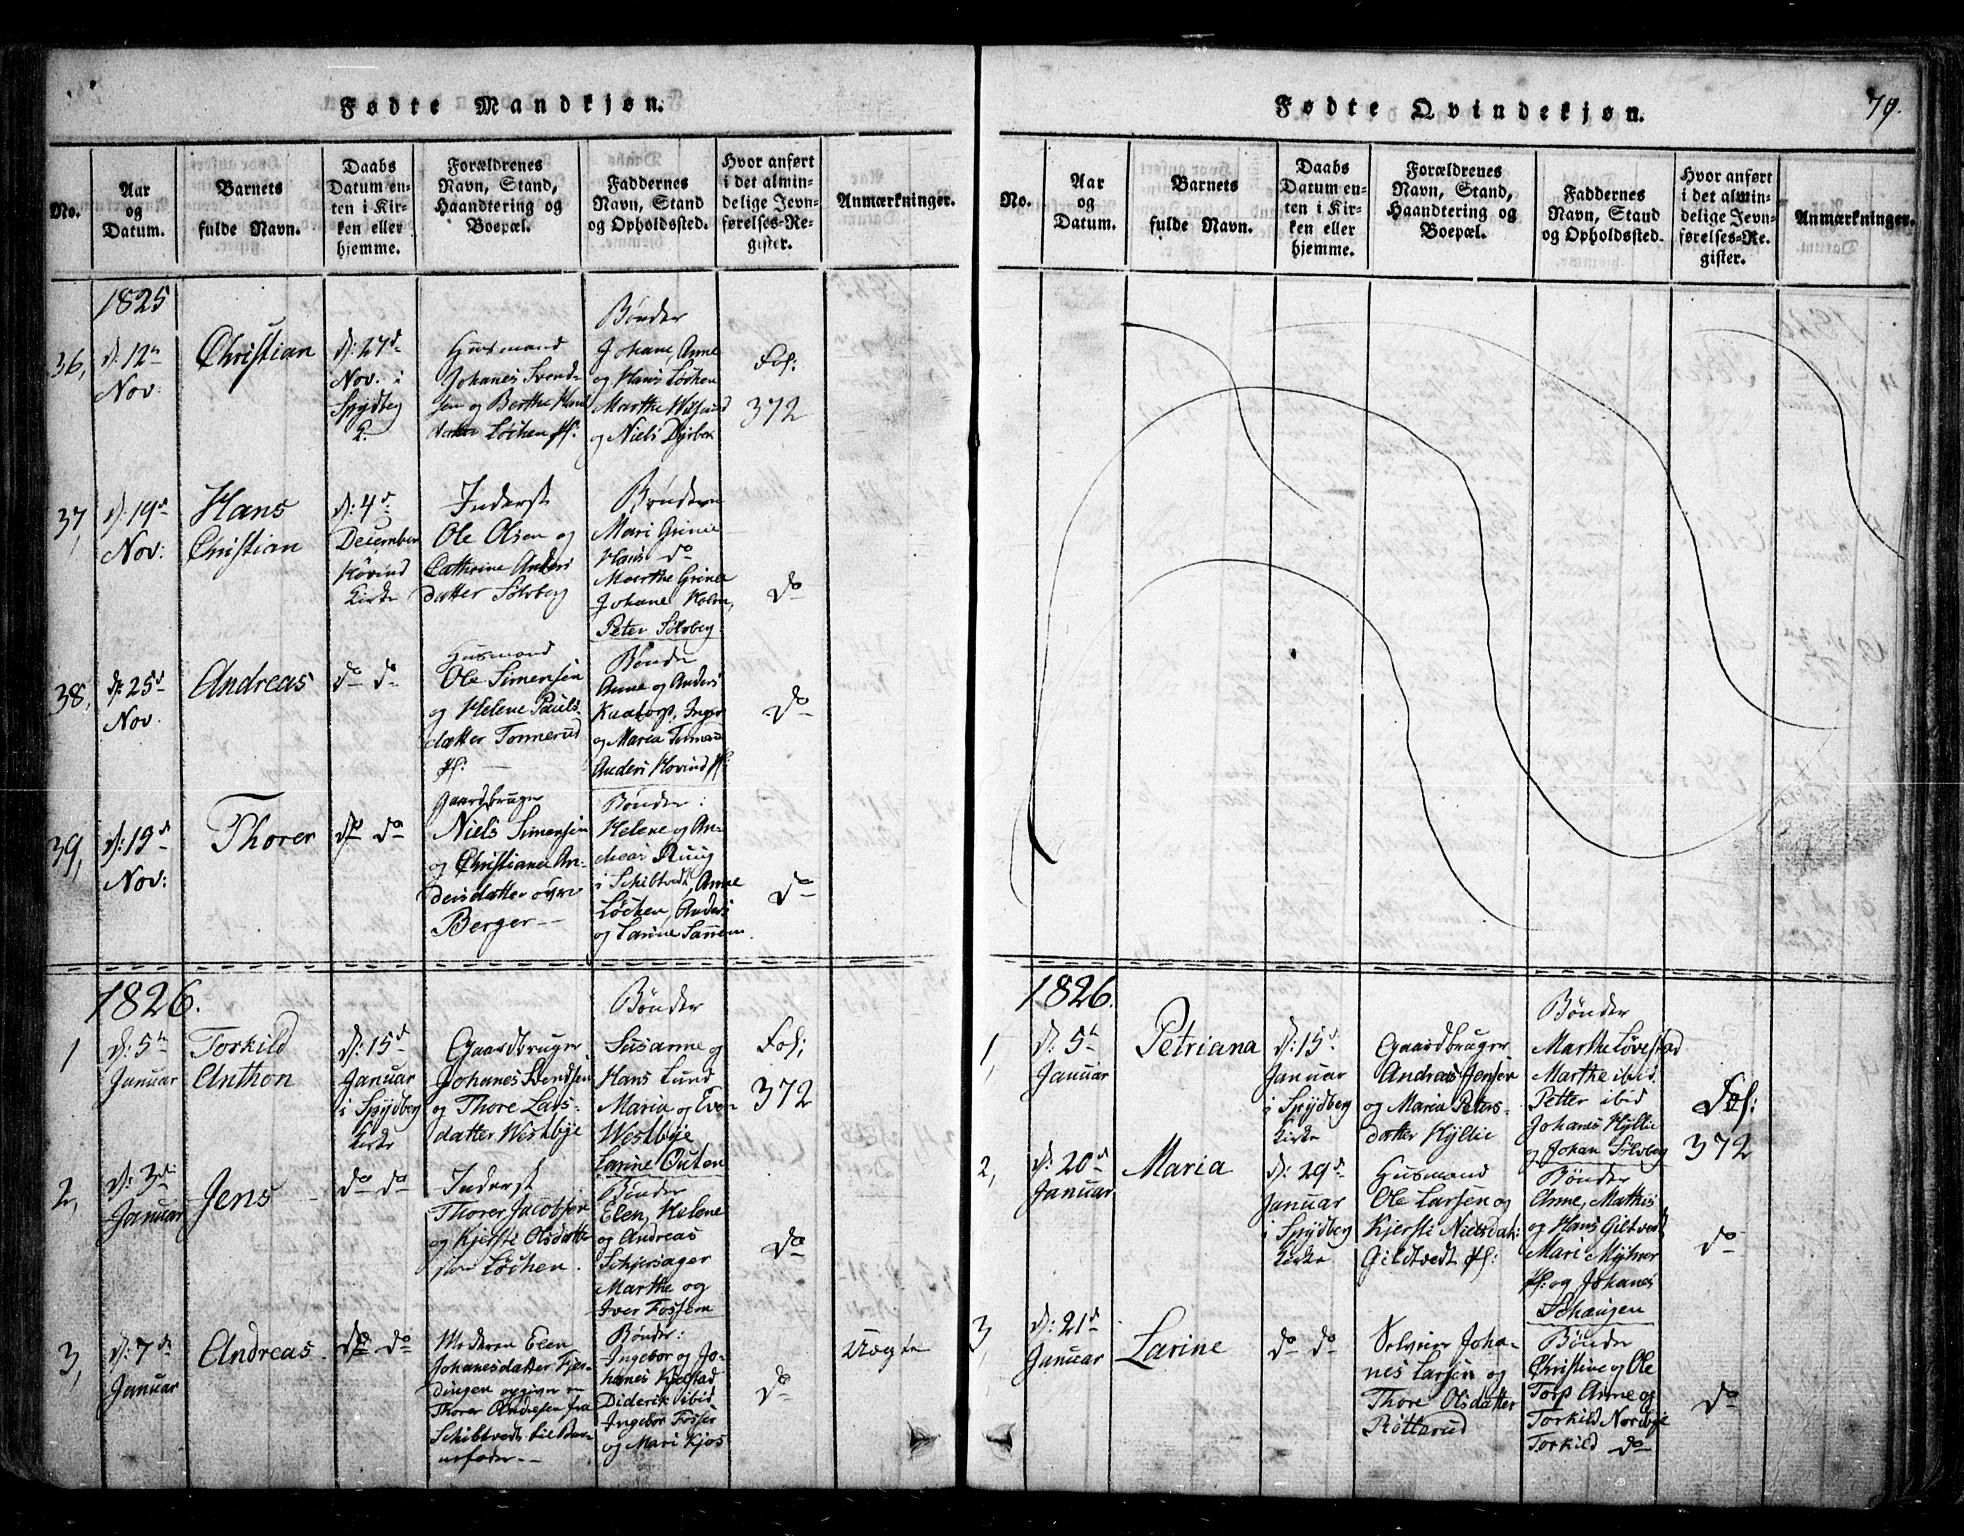 Fødte Mandkjøn.
No.
Aar
og
Datum.
Barnets
fulde Navn.
Daabs
Datum en-
ten i Kir-
ken eller
hjemme.
Forældrenes
Navn, Stand,
Haandtering og
Boepæl.
Faddernes
Navn, Stand
og Opholdssted.
Hvor anført
i det almin-
delige Jevn-
førelses-Re-
gister.
Anmærkninger.
1825
36,
d: 12te
Nov:
Christian
d: 27d
Nov. i
Spydberg
K.
Husmand
Johanes Svend-
sen og Berthe Hans
datter Løchen
Bønder
Johane, Anne
og Hans Løchen
Marthe
og Niels
Fol:
372
37,
d: 19d
Nov:
Hans
Christian
d: 4d
December
Hovind
Kirke
Inderst
Ole Olsen og
Cathrine Anders
datter Sølvberg
Bønder
Mari Grinie
Hans do
Marthe Grinie
Johane Holm,
Peter Sølvberg
do
38,
d: 25d
Nov.
Andreas
do do
Husmand
Ole Simensen
og Helene Pauls-
datter Tonnerud
Pl:
Bønder
Anne og Anders
Inger
og Maria
Anders Hovind Pl:
do
39,
d: 13d
Nov:
Thorer
do do
Gaardbruger
Niels Simensen
og Christiana An-
dersdatter øvre
Berger
Bønder:
Helene og An-
dreas Ruug
i Schibtvedt, Anne
Løchen, Anders
og Larine
do
1826.
1
d: 5te
Januar
Torkild
Anthon
d: 15d
Januar
i Spydberg
Kirke
Gaardbruger
Johanes Svendsen
og Thore Lars-
datter Westbye
Bønder
Susanne og
Hans Lund
Maria og Even
Westbye
Larine Outen
Fol:
372
2,
d: 3die
Januar
Jens
do do
Inderst
Thorer Jacobsen
og Kjersti Olsdatter
Løchen.
Bønder
Elen, Helene
og Andreas
Schjersager
Marthe og
Iver Fossem
do
3,
d: 7de
Januar
Andreas
do do
Moderen Elen
Johanesdatter Fjer-
dingen opgiver en
Thorer Andresen fra
Schibtvedt til Bar-
nefader
Bønder:
Ingebor og Jo-
hanes
Diderik ibid
Ingebor Fosser
og Mari Kjos
do
Uægte
Fødte Qvindekjøn.
79.
No.
Aar
og
Datum.
Barnets
fulde Navn.
Daabs
Datum en-
ten i Kir-
ken eller
hjemme.
Forældrenes
Navn, Stand,
Haandtering og
Boepæl.
Faddernes
Navn, Stand
og Opholdssted.
Hvor anført
i det almin-
delige Jevn-
førelses-Re-
gister.
Anmærkninger.
1826.
1,
d: 5te
Januar
Petriana
d: 15d
Januar
i Spydberg
Kirke
Gaardbruger
Andreas Jensen
og Maria Peters-
datter Hyllie
Bønder
Marthe Løvestad
Marthe ibid.
Petter ibid
Johanes Hyllie
og Johan Sølvberg
Fol:
372
2,
d: 20d
Januar
Maria
d: 29d
Januar
i Spydberg
Kirke
Husmand
Ole Larsen og
Kjersti Nielsdat:
Gildtvedt Pl:
Bønder
Anne, Mathis
og Hans Giltvedt
Mari Myhrer
Pl: og Johanes
Schaugen
do
3,
d: 21d
Januar
Larine
do do
Selveier Joha-
nes Larsen og
Thore Olsdatter
Rotterud
Bønder
Christine og Ole
Torp Anne og
Torkild Nordbye
Torkild do
do